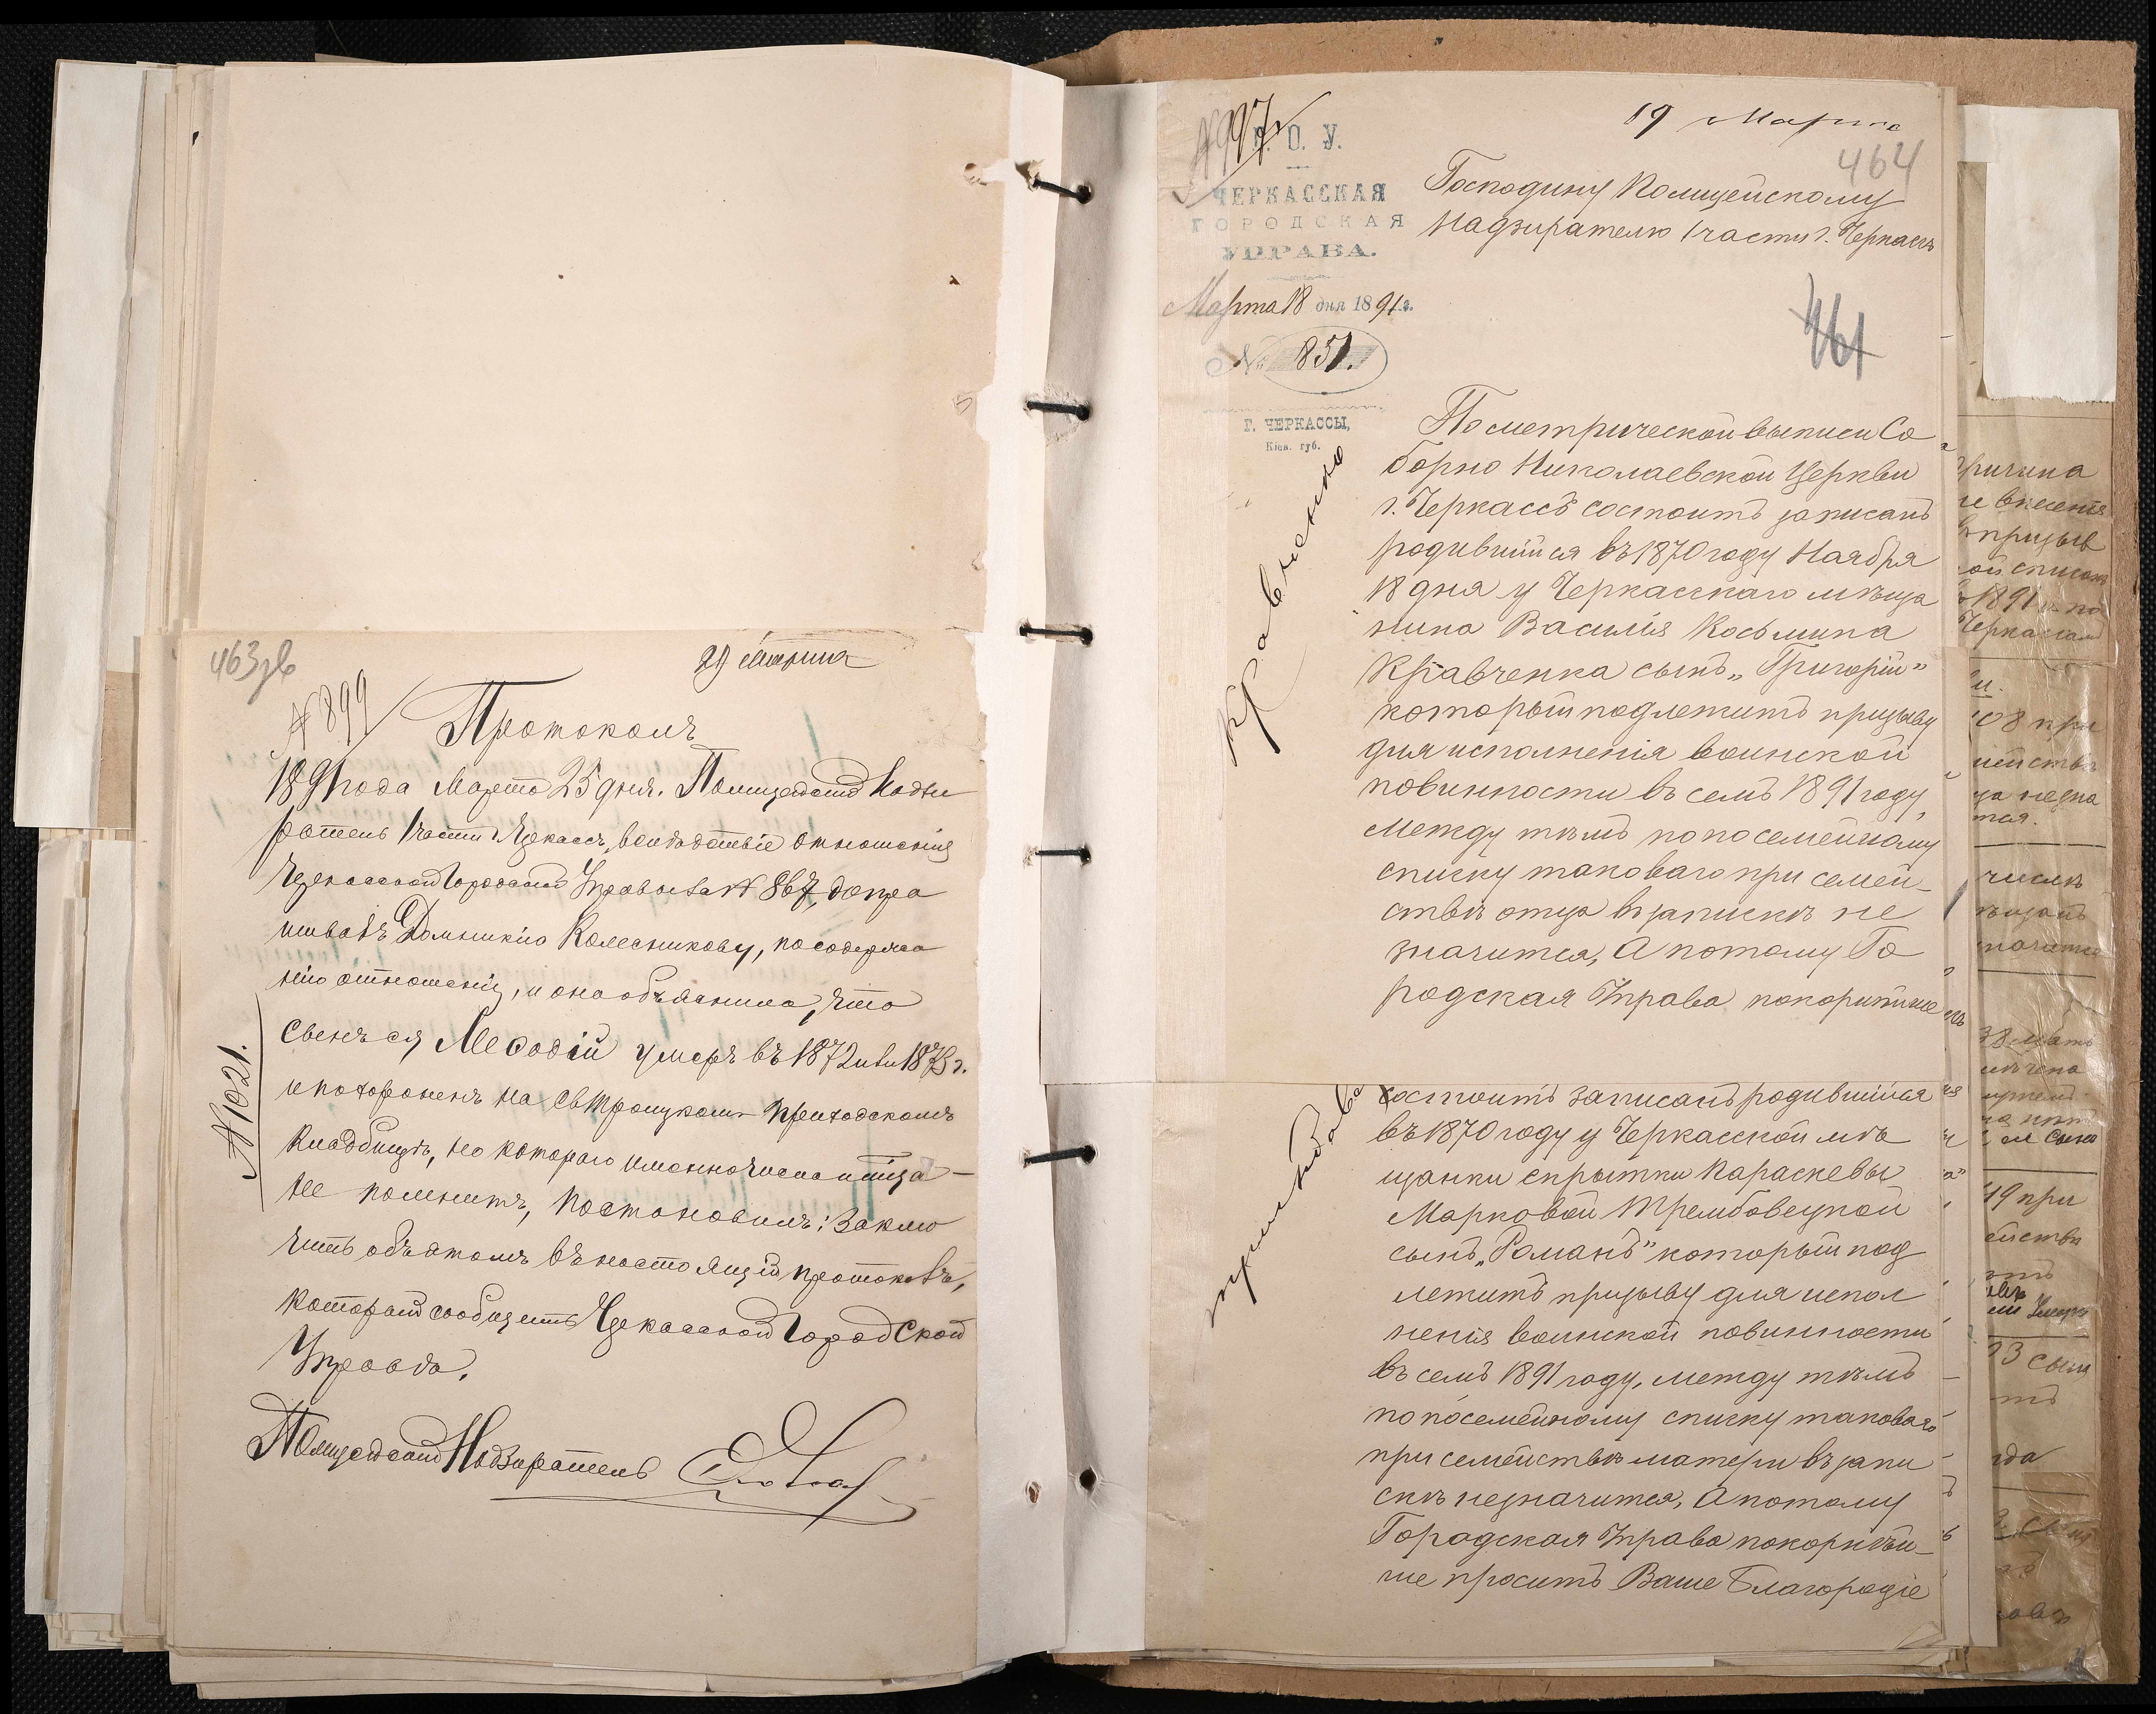 463зв
29 Марта
№ 899
Протоколъ
1891 года Марта 25 дня. Полицейскій Надзи
ратель 1 части г. Черкассъ, вслѣдствіе отношенія
Черкасской Городской Управы за № 867, допра
шивалъ Домникію Колесникову, по содержа
нію отношенія, и она объяснила, что
сынъ ея Меѳодій умеръ въ 1872 или 1873 г.
и похороненъ на Св Троицкомъ приходскомъ
кладбищѣ, но котораго именно числа и мѣсяца
не помнитъ, постановилъ: Заклю
чить объ этомъ въ настоящій протоколъ,
который сообщить Черкасской Городской
Управѣ.
Полицейскій Надзиратель
№ 1021.
№ 997
19 Марта
464
М. О. У.
ЧЕРКАССКАЯ
ГОРОДСКАЯ
УПРАВА.
Марта 18 дня 1891 г.
№ 851.
Г. ЧЕРКАССЫ,
Кіев. губ.
Господину Полицейскому
Надзирателю 1 части г. Черкассъ
461
Кравченко
По метрической выписи Со
борно Николаевской Церкви
г. Черкассъ состоитъ записанъ
родившійся въ 1870 году Ноября
18 дня у Черкасскаго мѣща
нина Василія Косьмина
Кравченка сынъ „Григорій"
который подлежитъ призыву
для исполненія воинской
повинности въ семъ 1891 году,
между тѣмъ по посемейному
списку таковаго при семей-
ствѣ отца въ запискѣ не
значится, А потому Го
родская Управа покорнѣйше
состоитъ записанъ родившійся
въ 1870 году у Черкасской мѣ
щанки скрытки Параскевы
Марковой Трембовецкой
сынъ „Романъ" который под
лежитъ призыву для испол
ненія воинской повинности
въ семъ 1891 году, между тѣмъ
по посемейному списку таковаго
при семействѣ матери въ запи
скѣ незначится, А потому
Городская Управа покорнѣй-
ше проситъ Ваше Благородіе
причина
не внесенія
въ призыв
ной список
1891 г. по
при
числѣ
мать
19 при
сынъ